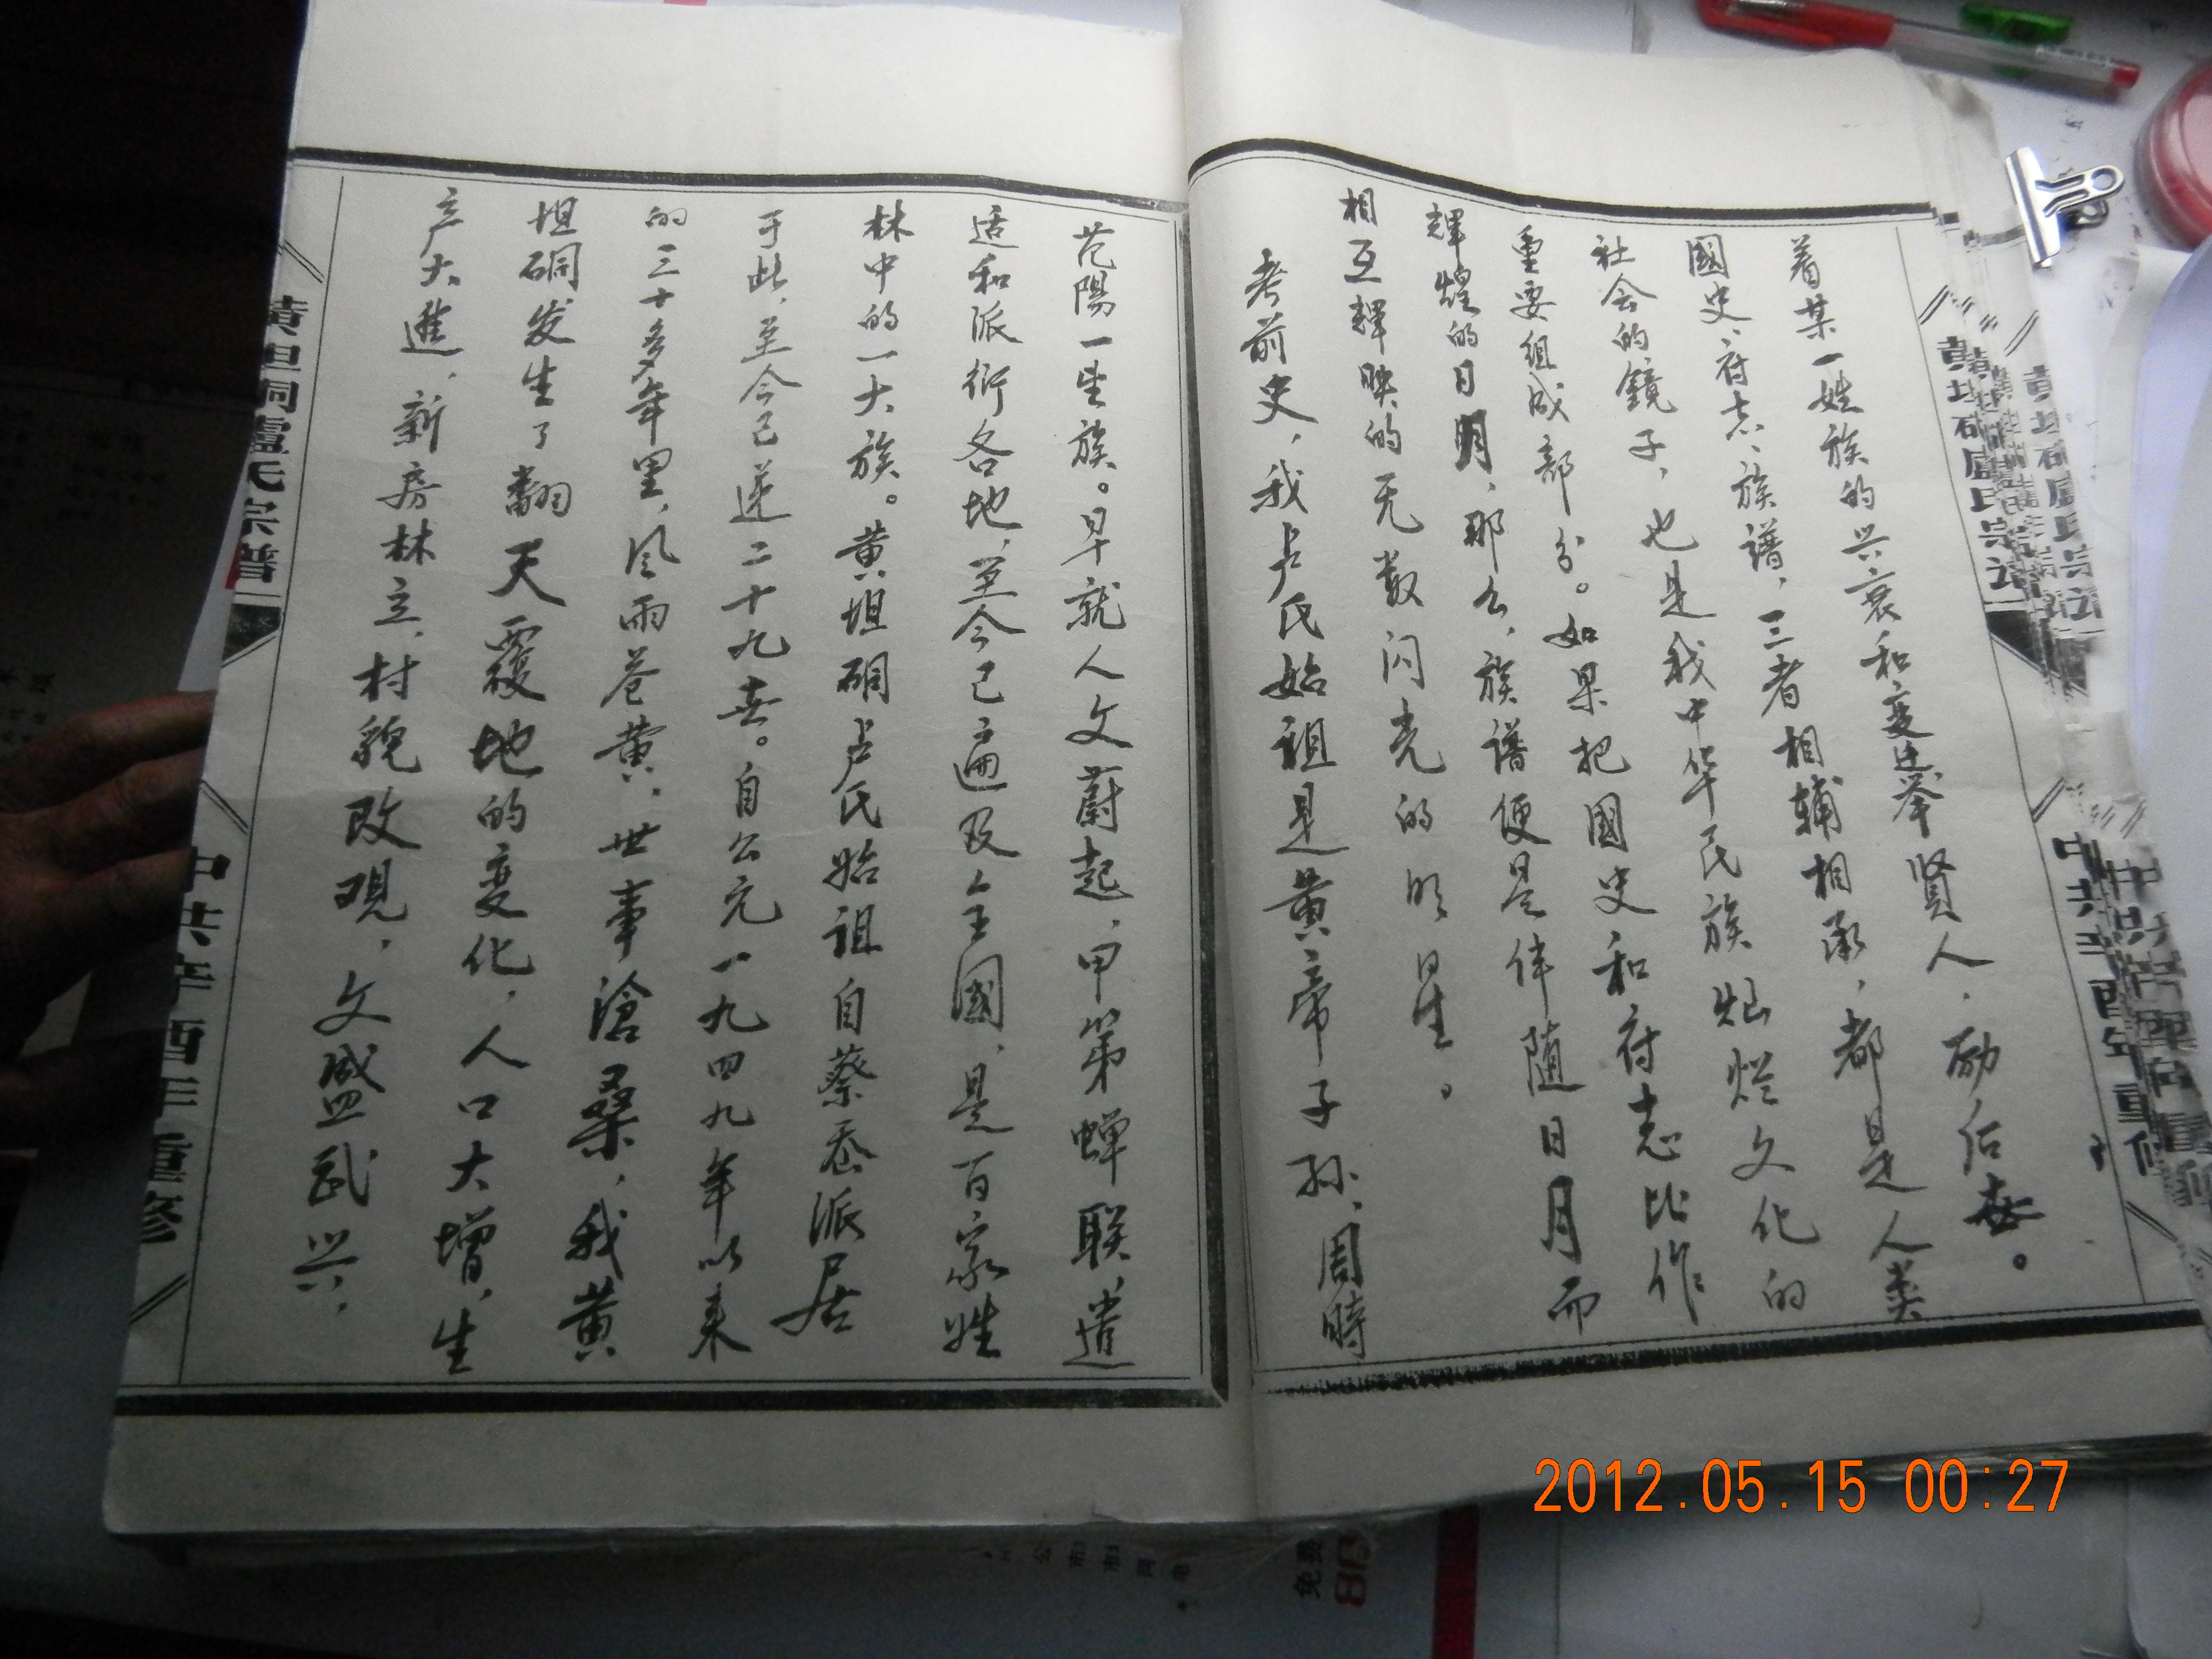 着某一姓族的兴衰和变迁，举贤人，励后世。
國史、府志、族谱，三者相辅相承，都是人类
社会的鏡子，也是我中华民族灿烂文化的
重要组成部分。如果把國史和府志比作
輝煌的日明，那么，族谱便是伴随日月而
相互輝映的无数闪亮的明星。
考前史，我卢氏始祖是黄帝子孙，周時
范陽一望族。早就人文蔚起，甲第蝉联，遗
适和派衍各地，至今已遍及全國，是百家姓
林中的一大族。黄坦硐卢氏始祖自蔡岙派居
于此，至今已逆二十九世。自公元一九四九年以来
的三十多年里，风雨苍黄，世事滄桑，我黄
坦硐发生了翻天覆地的变化，人口大增，生
产大進，新房林立，村貌改观，文盛武兴，
黄坦硐盧氏宗普
中共辛酉年重修
黄坦硐盧氏宗谱
中共辛酉年重修
2012.05.15 00:27
免费